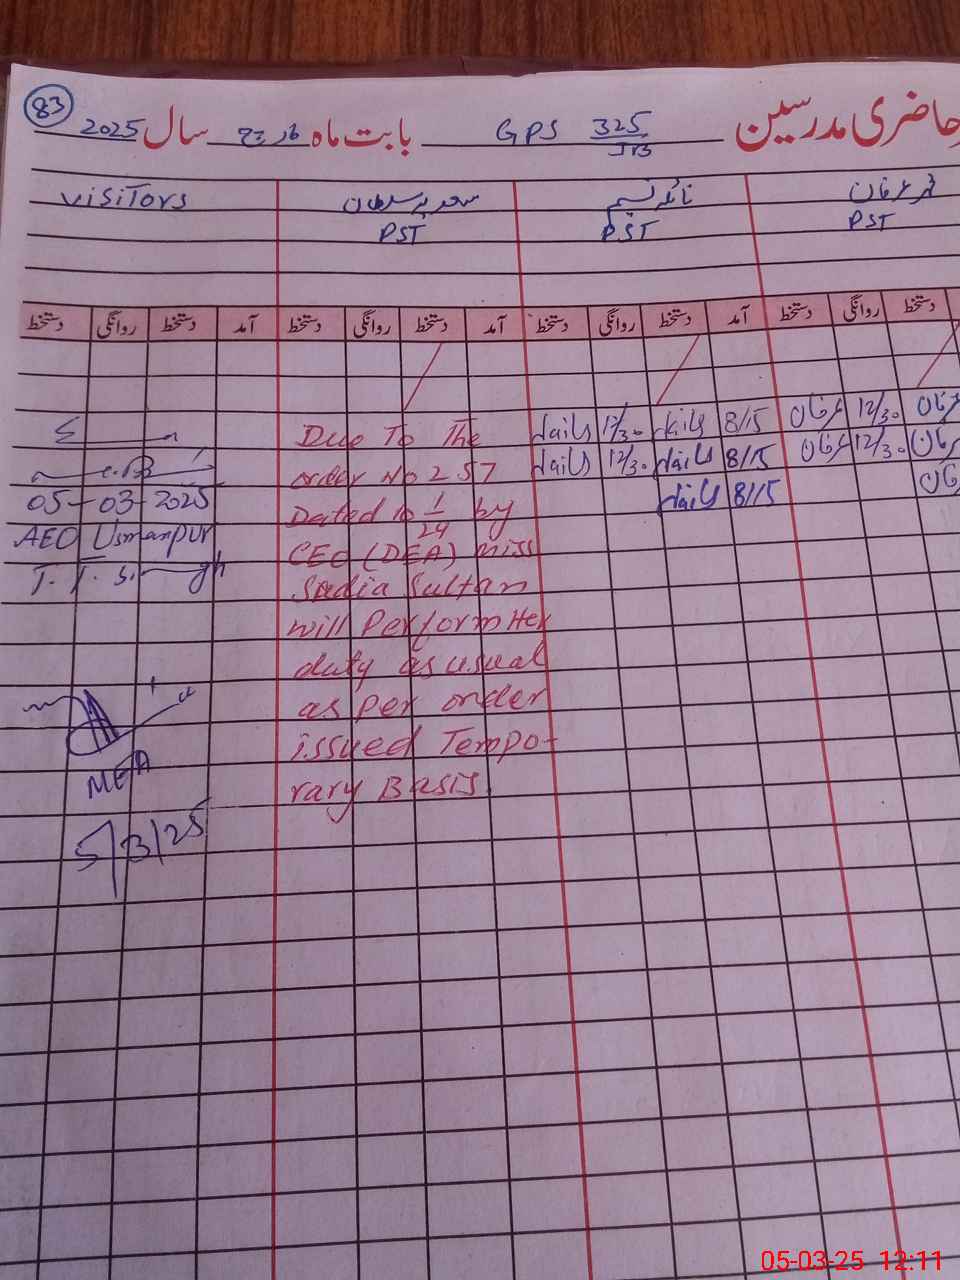 83
حاضری مدرسین GPS 325 JB بابت ماہ مارچ سال 2025
محمد عرفان نائلہ نسیم سعدیہ سلطان VISITORS
PST PST PST
دستخط روانگی دستخط آمد دستخط روانگی دستخط آمد دستخط روانگی دستخط آمد دستخط روانگی دستخط
عرفان 12/30 عرفان 8/15 نائلہ 12/30 نائلہ
عرفان 12/30 عرفان 8/15 نائلہ 12/30 نائلہ
عرفان 8/15 نائلہ
Due To The
order No 257
Dated 10 1/24 by
CEO (DEA) Miss
Sadia Sultan
will Perform Her
duty as usual
as per order
issued Tempo-
rary Basis
05-03-2025
AEO Usmanpur
T.T. Singh
MEA
5/3/25
05-03-25 12:11